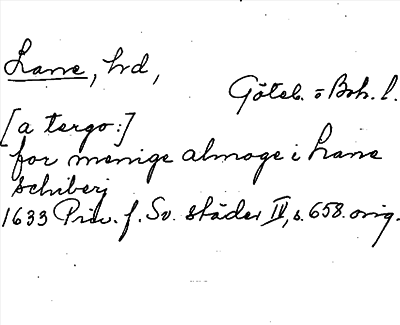 Lane, hd,
Göteb. o Boh. l.
[a tergo:]
for menige almoge i Lane
schiberj
1633 Priv. f. Sv. städer IV, s. 658. orig.